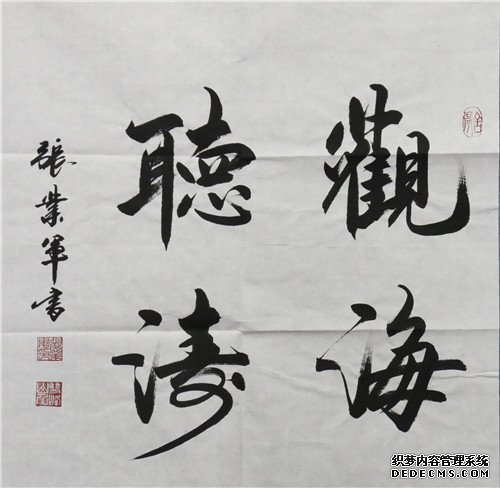 觀海
聽濤
張業軍书
织梦内容管理系统
DEDECMS.COM